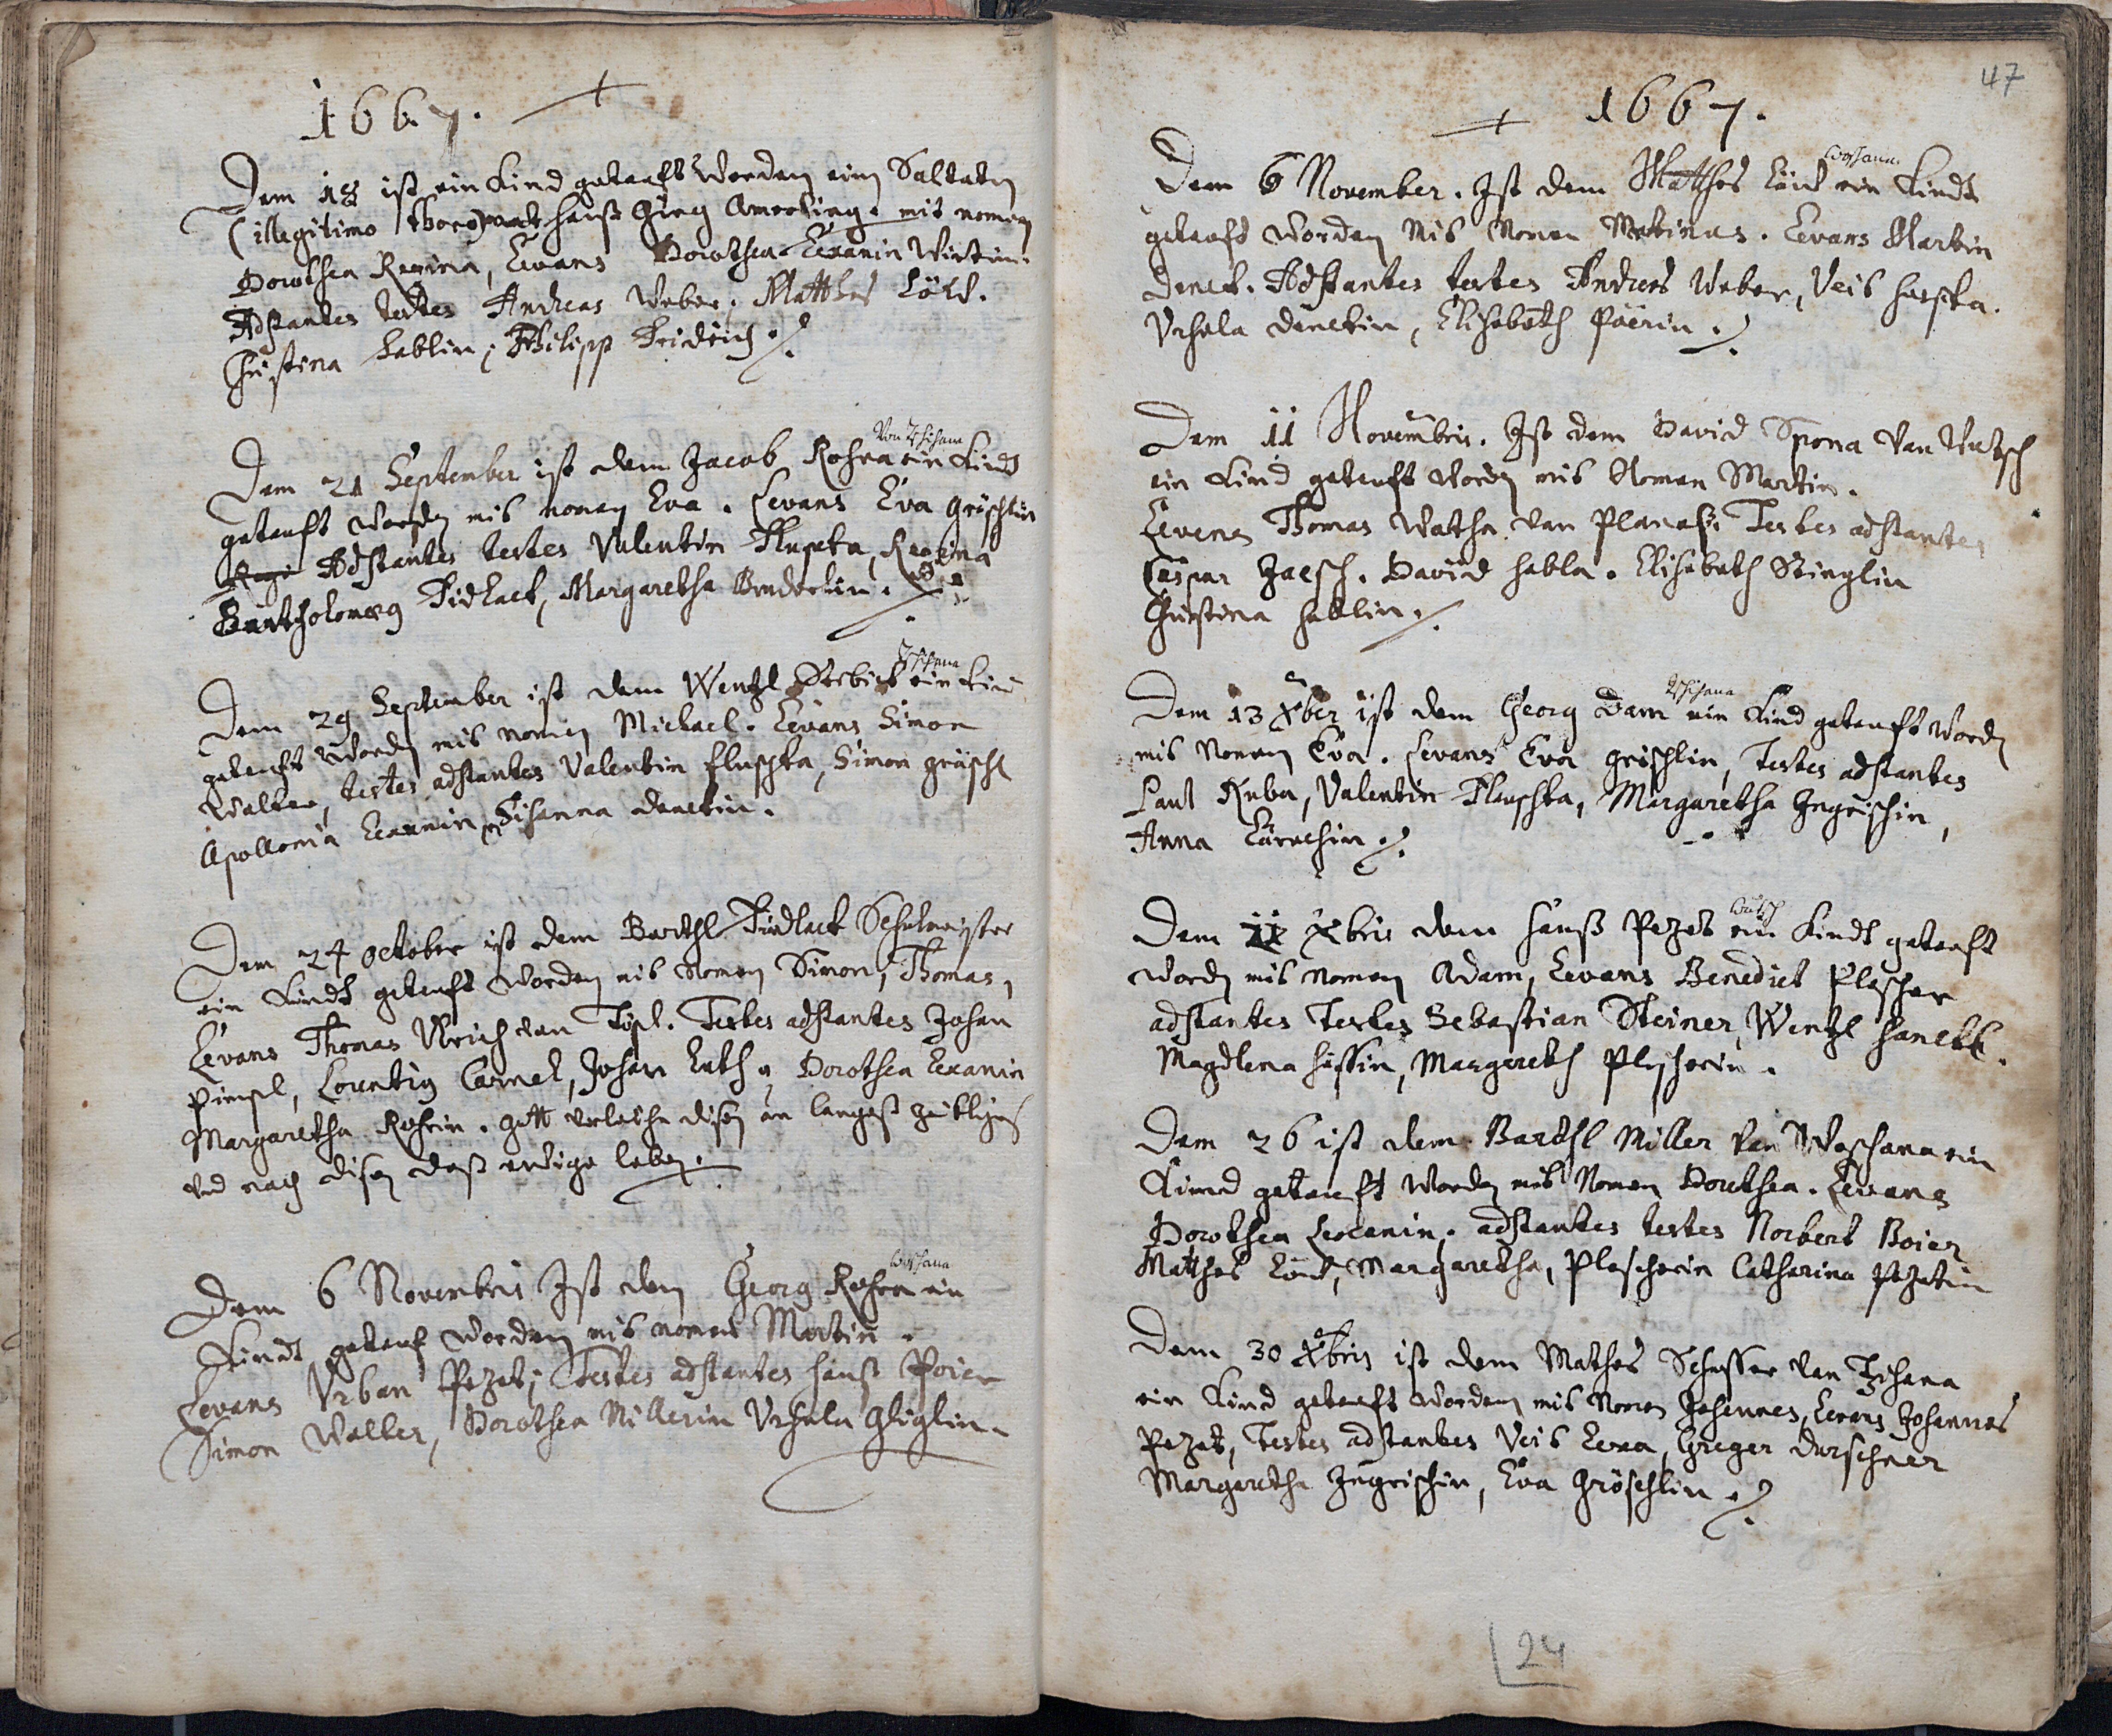 1667.
Dem 18 ist ein Kind getauft worden eim Saltaten
(illegitimo thoro) Hanß Girg Amerling. mit nomen
Dorothea Regina, Levans Dorothea Lexanin Wirtin.
Adstantes testes Andreas Weber, Matthes Löld.
Christina Hablin, Philipp Fridrich ./.
Von Tschihana
Dem 21 September ist dem Jacob Rohra ein Kindt
getauft worden mit nomen Eva. Levans Eva Gröschlin
Regi Adstantes testes Valentin Pluschka, Regina
Bartholomeg Fidlack, Margaretha Bruderhin.
Tschihana
Dem 29 September ist dem Wentzl Stebick ein Kind
getauft worden mit nomen Michael. Levans Simon
Walter, testes adstantes Valentin Pluschka, Simon gröschl
Apollonia Lexanin, Sisanna Denckin.
Dem 24 october ist dem Barthl Fidlack Schulmeister
ein Kindt getauft worden mit Nomen Simon, Thomas,
Levans Thomas Ulrich von Töpl. Testes adstantes Johan
Pimpl, Johan Dorothea Lexanin
Margaretha Rohrin. Gott verleihe disen ein langeß zeitliges
und nach disen daß ewige leben.
Woschana
Dem 6 Novembris Ist dem Georg Rohra ein
Kindt getauf worden mit nomen Martin.
Levans Urban Pezet; Testes adstantes Hanß Poier
Simon Walter, Dorothea Millerin Ursula Gliglin.
47
1667.
Woschana
Dem 6 November. Ist dem Matthes Löld ein Kindt
getauft worden Mit Nomen Martinus. Levans Martin
Denck. Adstantes testes Andreas Weber, Veit Haschka.
Ursula Denckin, Elisabeth Poierin ./.
Dem 11 Novembris. Ist dem David Spona von Wutsch
ein Kind getauft worden mit Nomen Martin.
Levans Thomas Watha von Planaß. Testes adstantes
Caspar Zaesch. David Habla. Elisabeth Stinglin
Christina Hablin ./.
Tschihana
Dem 13 Xber ist dem Georg Dam ein Kind getauft worden
mit Nomen Eva. Levans Eva gröschlin, Testes adstantes
Paul Kuba, Valentin Pluschka, Margaretha Ingrischin,
Anna ./.
Wutsch
Dem 11 Xbris dem Hanß Pezet ein Kindt getauft
worden mit nomen Adam, Levans Benedict Plescher
adstantes Testes Sebastian Steiner, Wentzl Hanckh.
Magdlena Hessin, Margareth Plescherin.
Dem 26 ist dem Barthl Miller von Woschana ein
Kind getauft worden mit Nomen Dorothea. Levans
Dorothea Lexanin, adstantes testes Norbert Boier
Mathes Löld, Margaretha, Plescherin Catharina Pezetin
Dem 30 Xbris ist dem Mathes Schuster von Tzihana
ein Kind getauft worden mit Nomen Johannes, Levans Johannes
Pezet, Testes adstantes Veit Lexa, Greger Durschner
Margaretha Ingrischin, Eva Gröschlin ./.
24